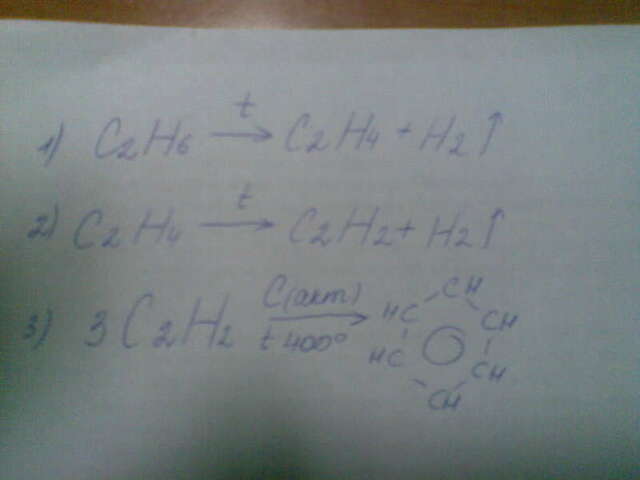 1) C2H6 t→ C2H4 + H2↑
2) C2H4 t→ C2H2 + H2↑
3) 3C2H2 C(акт) t 400° → CH
HC CH
HC CH
CH